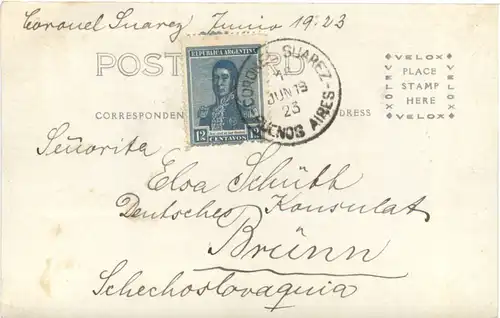 Coronel Suarez Junio 19.23
REPUBLICA ARGENTINA
12 CENTAVOS
CORONEL SUAREZ-
JUN 19
23
BUENOS AIRES
POST CARD
VELOX
PLACE
STAMP
HERE
VELOX
VELOX
VELOX
CORRESPONDEN DRESS
Señorita
Elsa Schütt
Deutsches Konsulat
Brünn
Schechoslovaquia